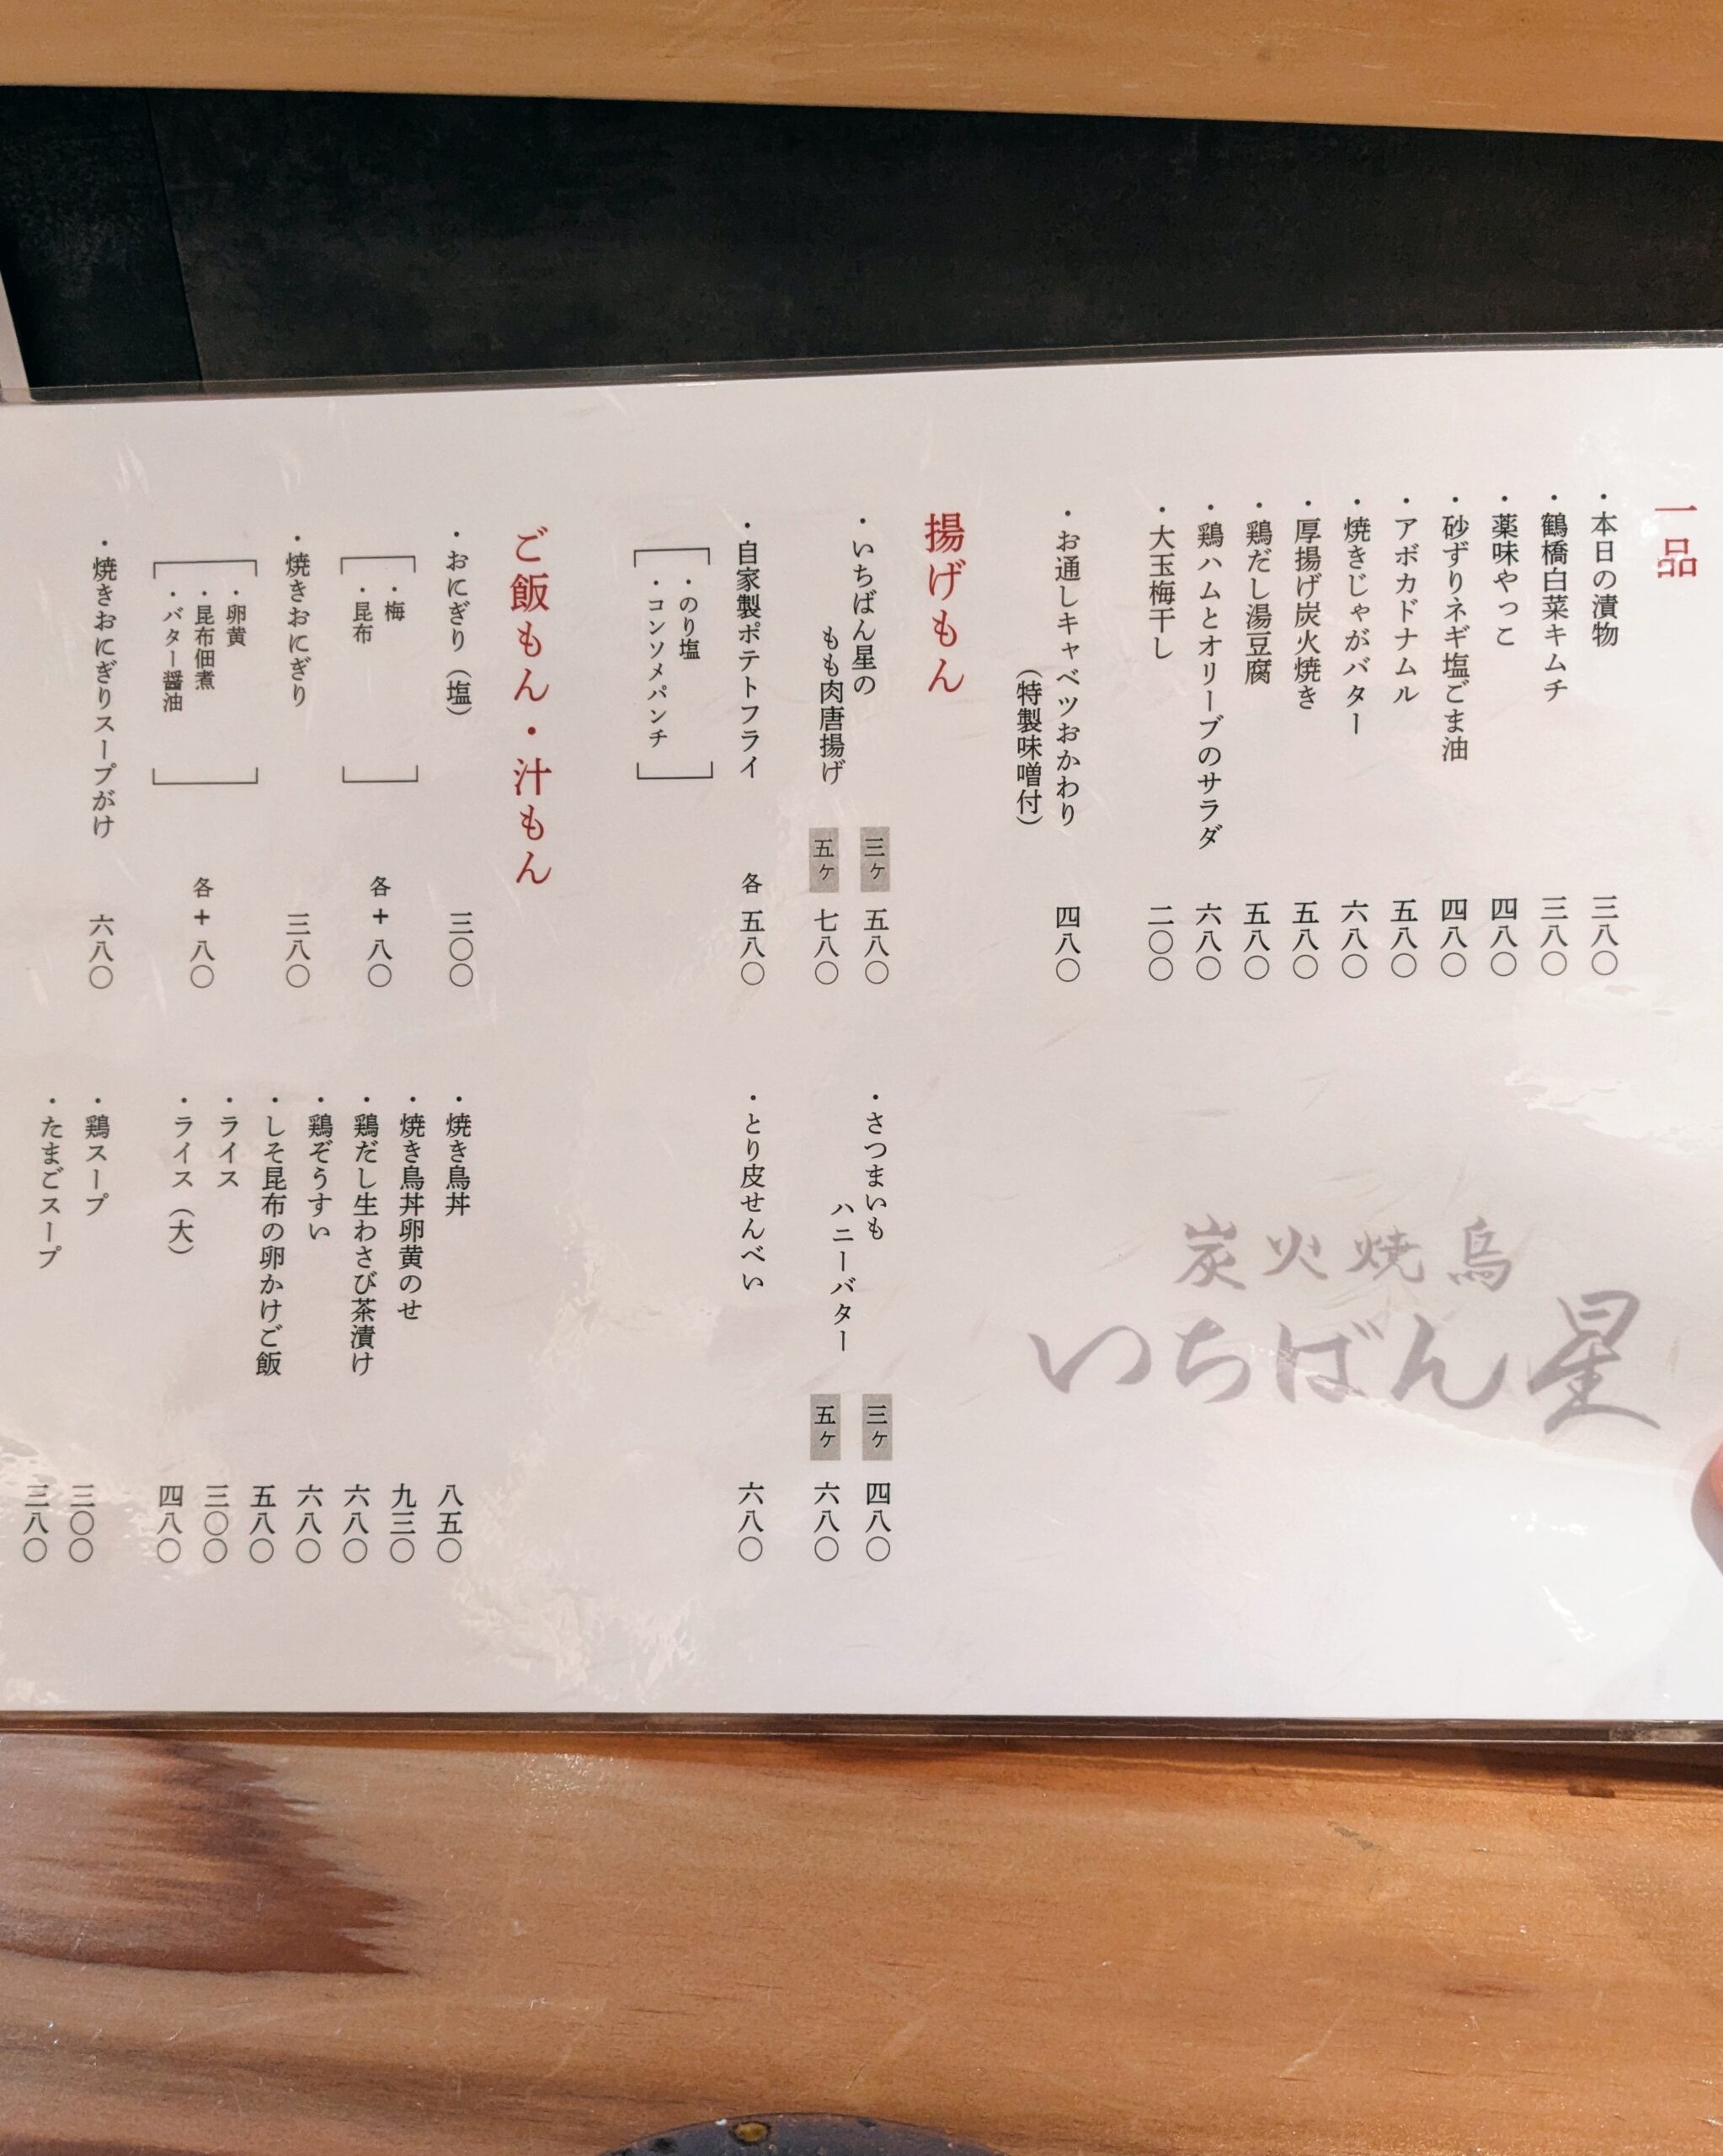 一品
・本日の漬物 三八〇
・鶴橋白菜キムチ 三八〇
・薬味やっこ 四八〇
・砂ずりネギ塩ごま油 四八〇
・アボカドナムル 五八〇
・焼きじゃがバター 六八〇
・厚揚げ炭火焼き 五八〇
・鶏だし湯豆腐 五八〇
・鶏ハムとオリーブのサラダ 六八〇
・大玉梅干し 二〇〇
・お通しキャベツおかわり 四八〇
（特製味噌付）
炭火焼鳥
いちばん星
揚げもん
・いちばん星の 三ヶ 五八〇
もも肉唐揚げ 五ヶ 七八〇
・自家製ポテトフライ 各 五八〇
・のり塩
・コンソメパンチ
・さつまいも 三ヶ 四八〇
ハニーバター 五ヶ 六八〇
・とり皮せんべい 六八〇
ご飯もん・汁もん
・おにぎり（塩） 三〇〇
・梅
・昆布
各＋八〇
・焼きおにぎり 三八〇
・卵黄
・昆布佃煮
・バター醤油
各＋八〇
・焼きおにぎりスープがけ 六八〇
・焼き鳥丼 八五〇
・焼き鳥丼卵黄のせ 九三〇
・鶏だし生わさび茶漬け 六八〇
・鶏ぞうすい 六八〇
・しそ昆布の卵かけご飯 五八〇
・ライス 三〇〇
・ライス（大） 四八〇
・鶏スープ 三〇〇
・たまごスープ 三八〇